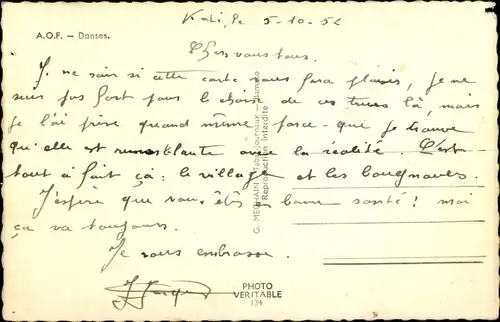 Kati, le 5-10-52
A.O.F. — Danses.
Chers vous tous.
Je ne sais si cette carte vous fera plaisir, je ne
suis pas fort pour le choix de ces trucs là, mais
je l'ai prise quand même parce-que je trouve
qu'elle est ressemblante avec la réalité. C'est
tout à fait ça : le village et les bougnoules.
J'espère que vous êtes en bonne santé ! moi
ça va toujours.
Je vous embrasse.
G. MECHAIN Tabac-Journaux - Bamako
Reproduction Interdite
PHOTO
VERITABLE
134